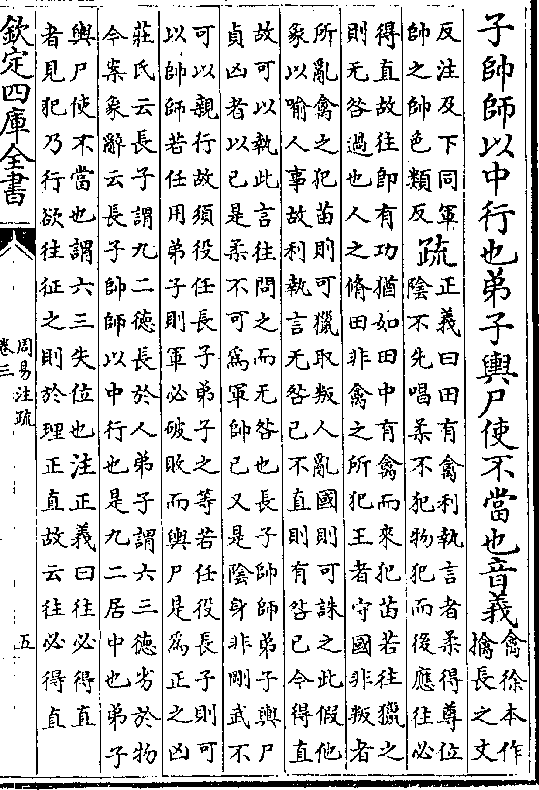 子帥師以中行也弟子輿尸使不當也音義禽徐本作
擒長之丈
反注及下同軍
帥之帥色類反
疏正義曰田有禽利執言者柔得尊位
陰不先唱柔不犯物犯而後應往必
得直故往即有功猶如田中有禽而來犯苗若往獵之
則无咎過也人之脩田非禽之所犯王者守國非叛者
所亂禽之犯苗則可獵取叛人亂國則可誅之此假他
象以喻人事故利執言无咎已不直則有咎已今得直
故可以執此言往問之而无咎也長子帥師弟子輿尸
貞凶者以已是柔不可為軍帥已又是陰身非剛武不
可以親行故須役任長子弟子之等若任役長子則可
以帥師若任用弟子則軍必破敗而輿尸是為正之凶
莊氏云長子謂九二德長於人弟子謂六三德劣於物
今案象辭云長子帥師以中行也是九二居中也弟子
輿尸使不當也謂六三失位也注正義曰往必得直
者見犯乃行欲往征之則於理正直故云往必得直
欽定四庫全書
周易注疏
卷三
五